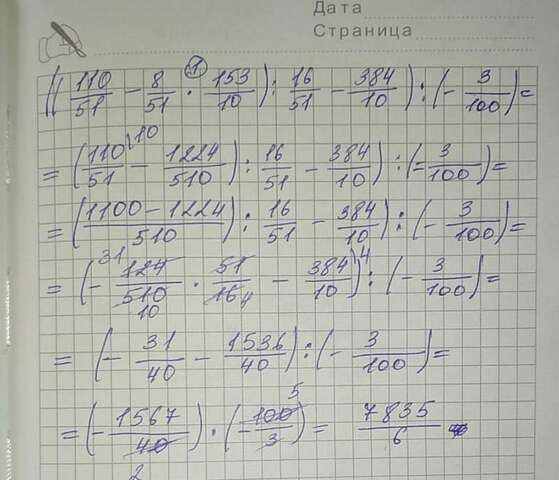 Дата
Страница
((110/51 - 8/51 ·① 153/10) : 16/51 - 384/10) : (- 3/100) =
= (110\10/51 - 1224/510) : 16/51 - 384/10) : (- 3/100) =
= (1100 - 1224/510) : 16/51 - 384/10) : (- 3/100) =
= (- 31 124/510 10 · 51/16 4 - 384/10)\4 : (- 3/100) =
= (- 31/40 - 1536/40) : (- 3/100) =
= (- 1567/40 2) · (- 100 5/3) = 7835/6